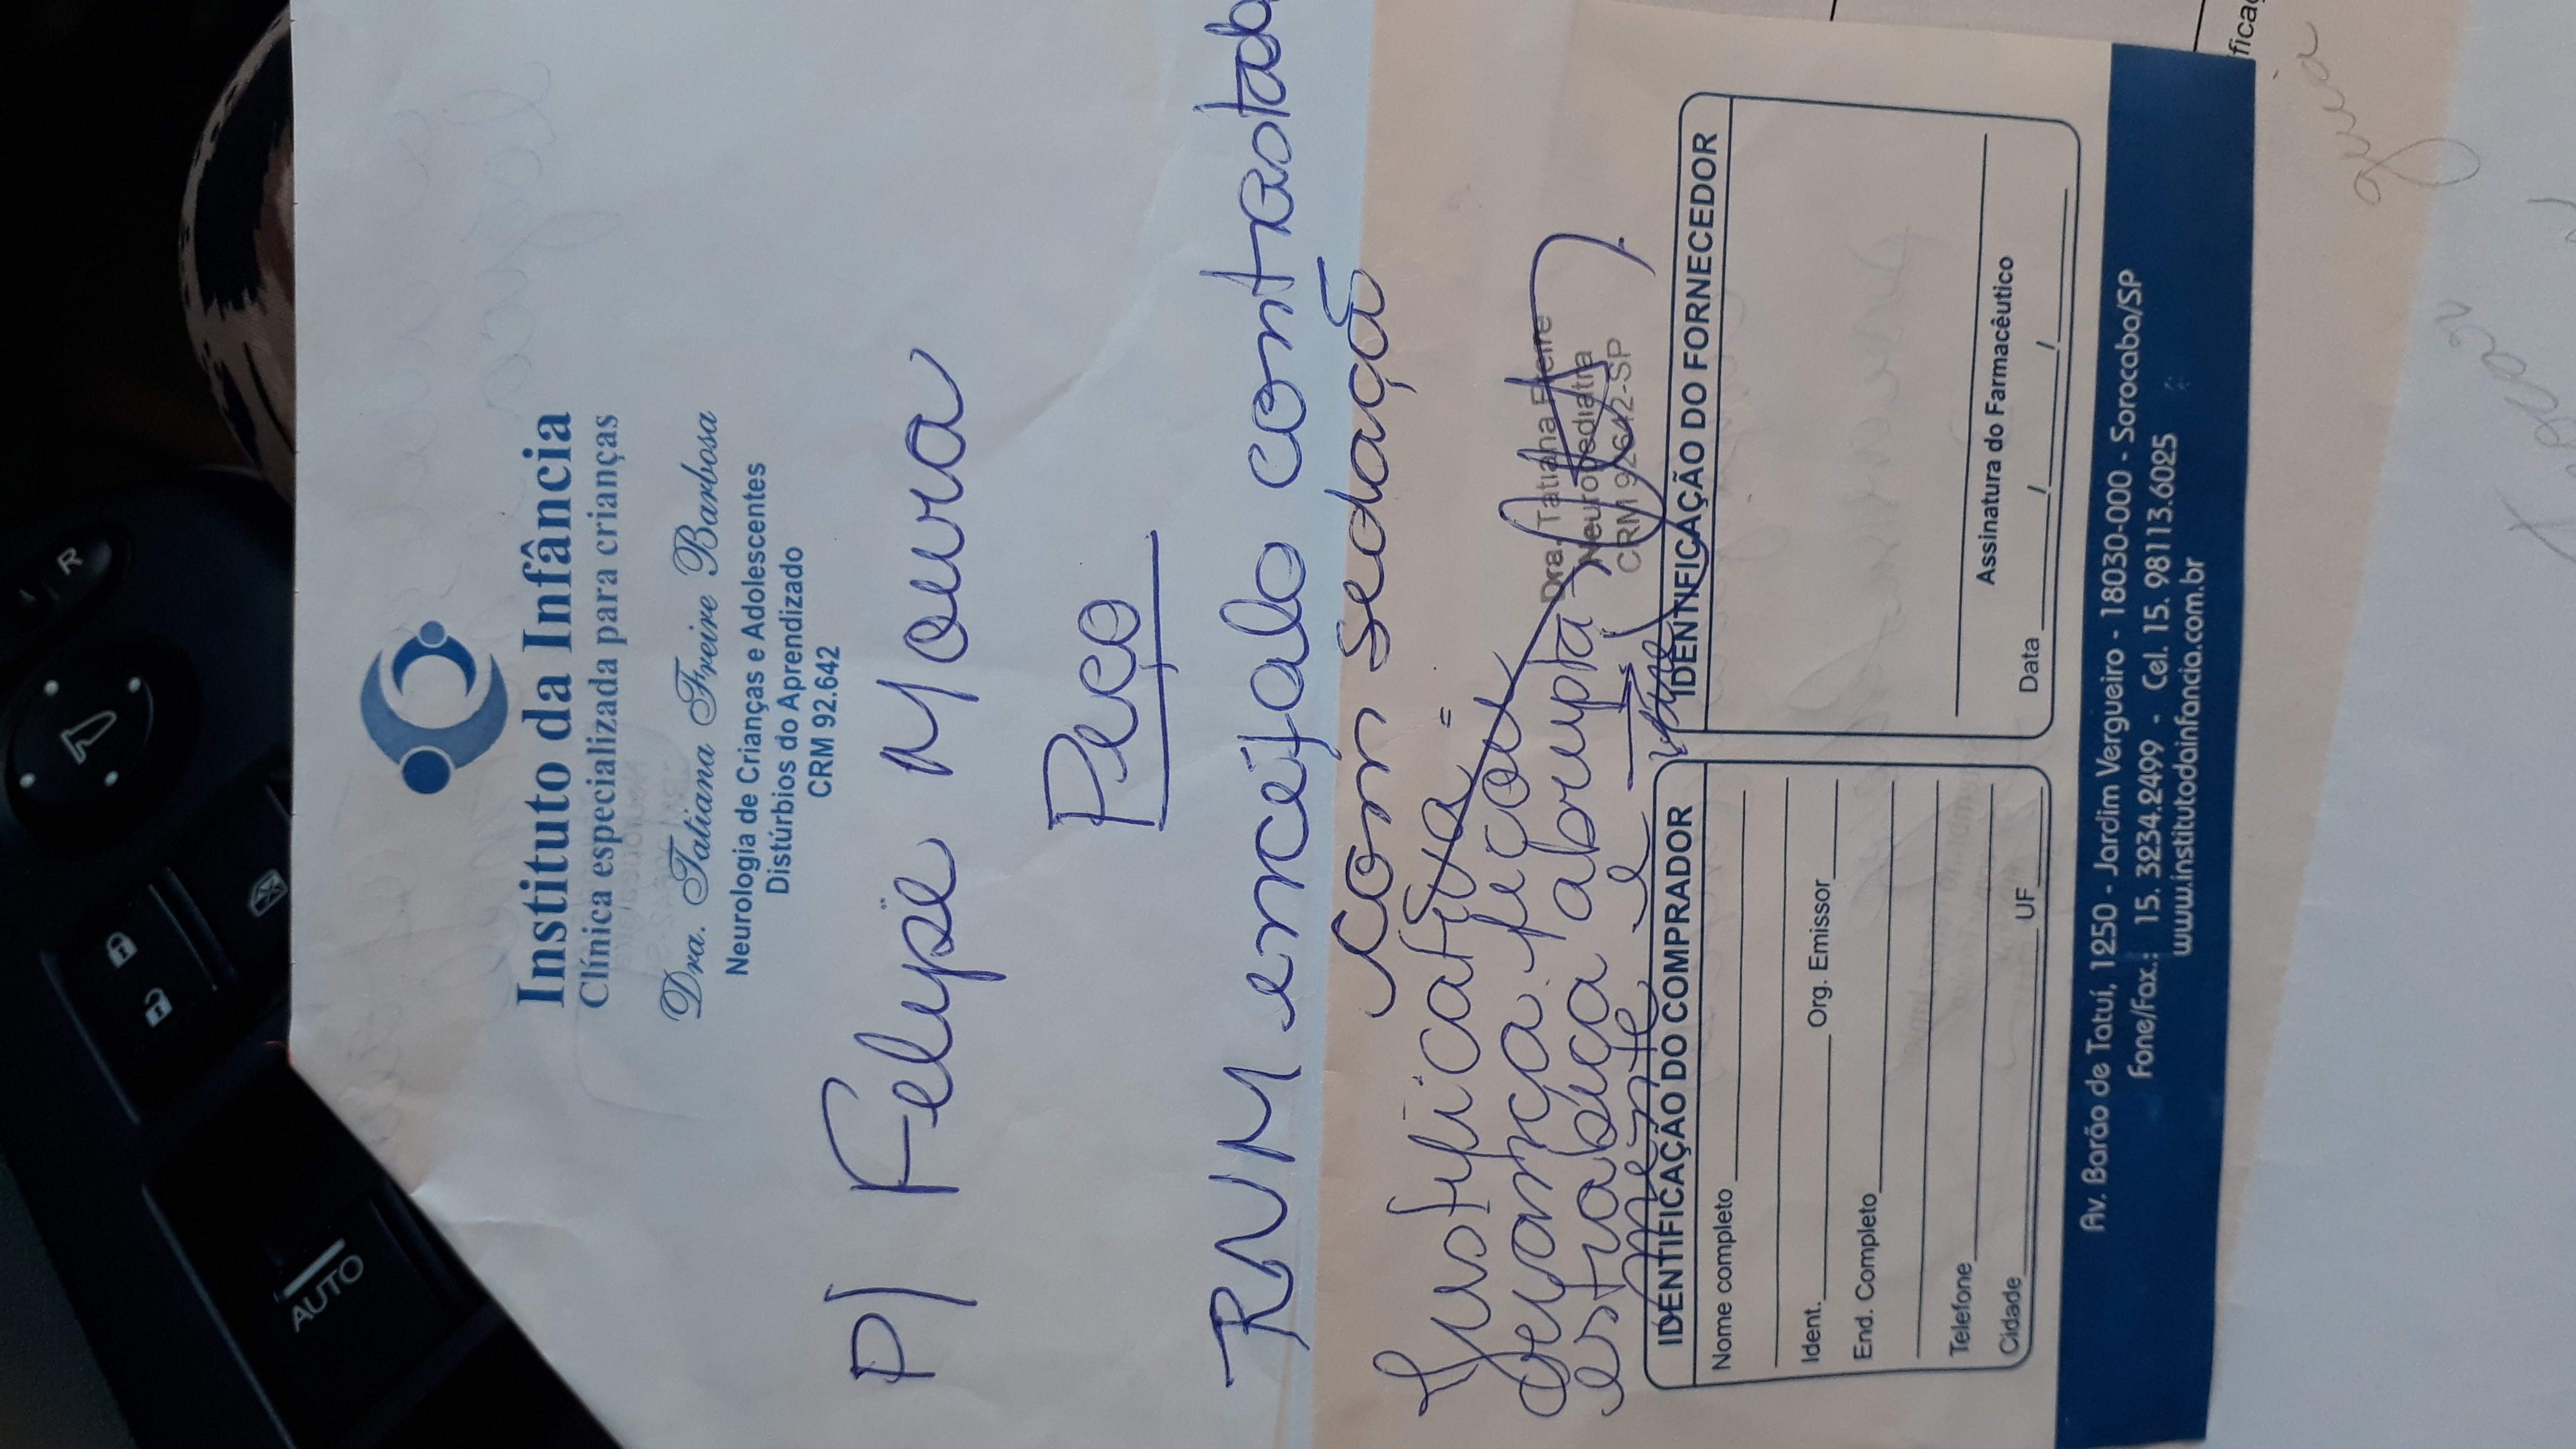 R
AUTO
Instituto da Infância
Clínica especializada para crianças
Dra. Tatiana Freire Barbosa
Neurologia de Crianças e Adolescentes
Distúrbios do Aprendizado
CRM 92.642
P/ Felipe Moura
Peço
RNM encéfalo contrastado
com sedação
Justificativa =
criança ficou
estrabica abrupta
mente e → vire
Dra. Tatiana Freire
Neuropediatra
CRM 92642-SP
IDENTIFICAÇÃO DO COMPRADOR
Nome completo
Ident. Org. Emissor
End. Completo
Telefone
Cidade UF
IDENTIFICAÇÃO DO FORNECEDOR
Assinatura do Farmacêutico
Data / /
Av. Barão de Tatuí, 1250 - Jardim Vergueiro - 18030-000 - Sorocaba/SP
Fone/Fax.: 15. 3234.2499 - Cel. 15. 98113.6025
www.institutodainfancia.com.br
guia